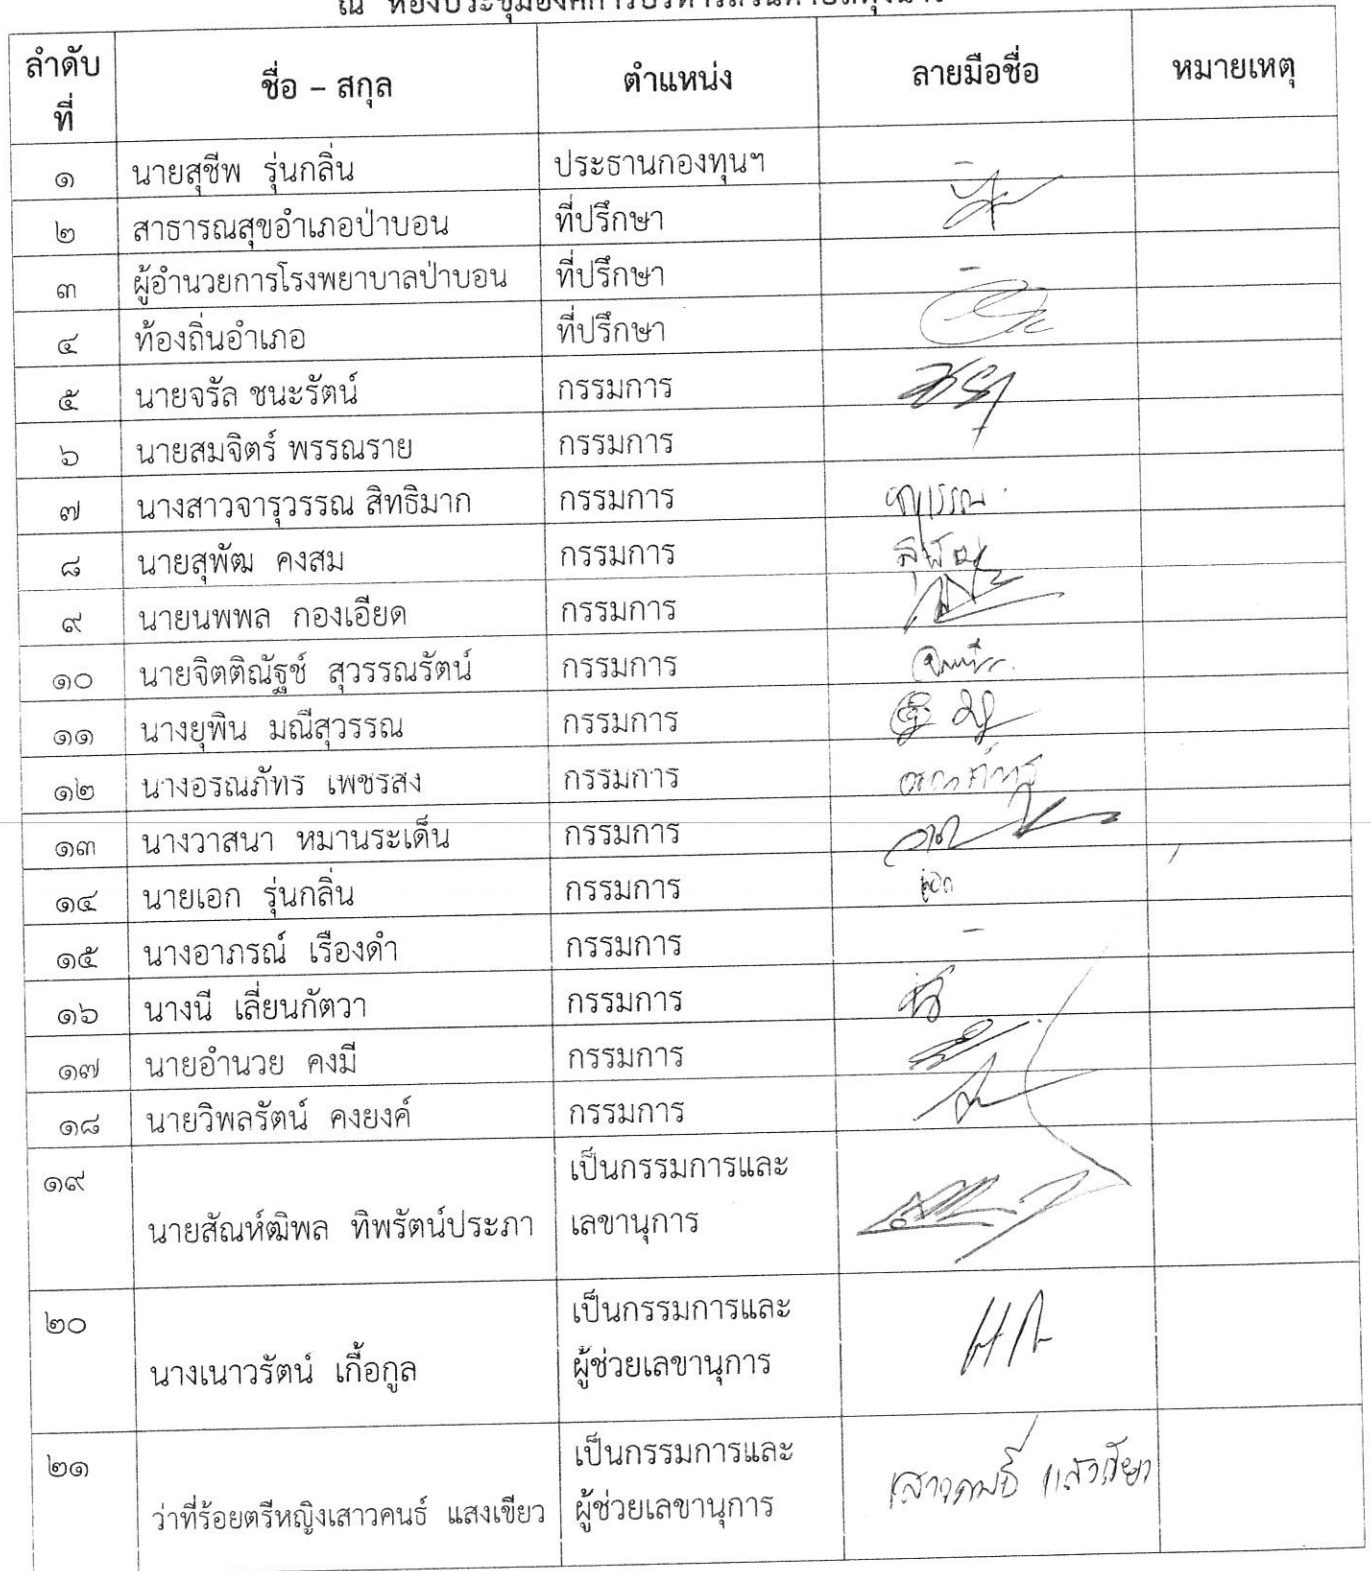 ลำดับที่ ชื่อ – สกุล ตำแหน่ง ลายมือชื่อ หมายเหตุ
๑ นายสุชีพ รุ่นกลิ่น ประธานกองทุนฯ -
๒ สาธารณสุขอำเภอป่าบอน ที่ปรึกษา
๓ ผู้อำนวยการโรงพยาบาลป่าบอน ที่ปรึกษา -
๔ ท้องถิ่นอำเภอ ที่ปรึกษา
๕ นายจรัล ชนะรัตน์ กรรมการ
๖ นายสมจิตร์ พรรณราย กรรมการ
๗ นางสาวจารุวรรณ สิทธิมาก กรรมการ
๘ นายสุพัฒ คงสม กรรมการ
๙ นายนพพล กองเอียด กรรมการ
๑๐ นายจิตติณัฐช์ สุวรรณรัตน์ กรรมการ
๑๑ นางยุพิน มณีสุวรรณ กรรมการ
๑๒ นางอรณภัทร เพชรสง กรรมการ
๑๓ นางวาสนา หมานระเด็น กรรมการ
๑๔ นายเอก รุ่นกลิ่น กรรมการ เอก
๑๕ นางอาภรณ์ เรืองดำ กรรมการ -
๑๖ นางนี เลี่ยนกัตวา กรรมการ
๑๗ นายอำนวย คงมี กรรมการ
๑๘ นายวิพลรัตน์ คงยงค์ กรรมการ
๑๙ นายสัณห์ฒิพล ทิพรัตน์ประภา เป็นกรรมการและ
เลขานุการ
๒๐ นางเนาวรัตน์ เกื้อกูล เป็นกรรมการและ
ผู้ช่วยเลขานุการ
๒๑ ว่าที่ร้อยตรีหญิงเสาวคนธ์ แสงเขียว เป็นกรรมการและ
ผู้ช่วยเลขานุการ